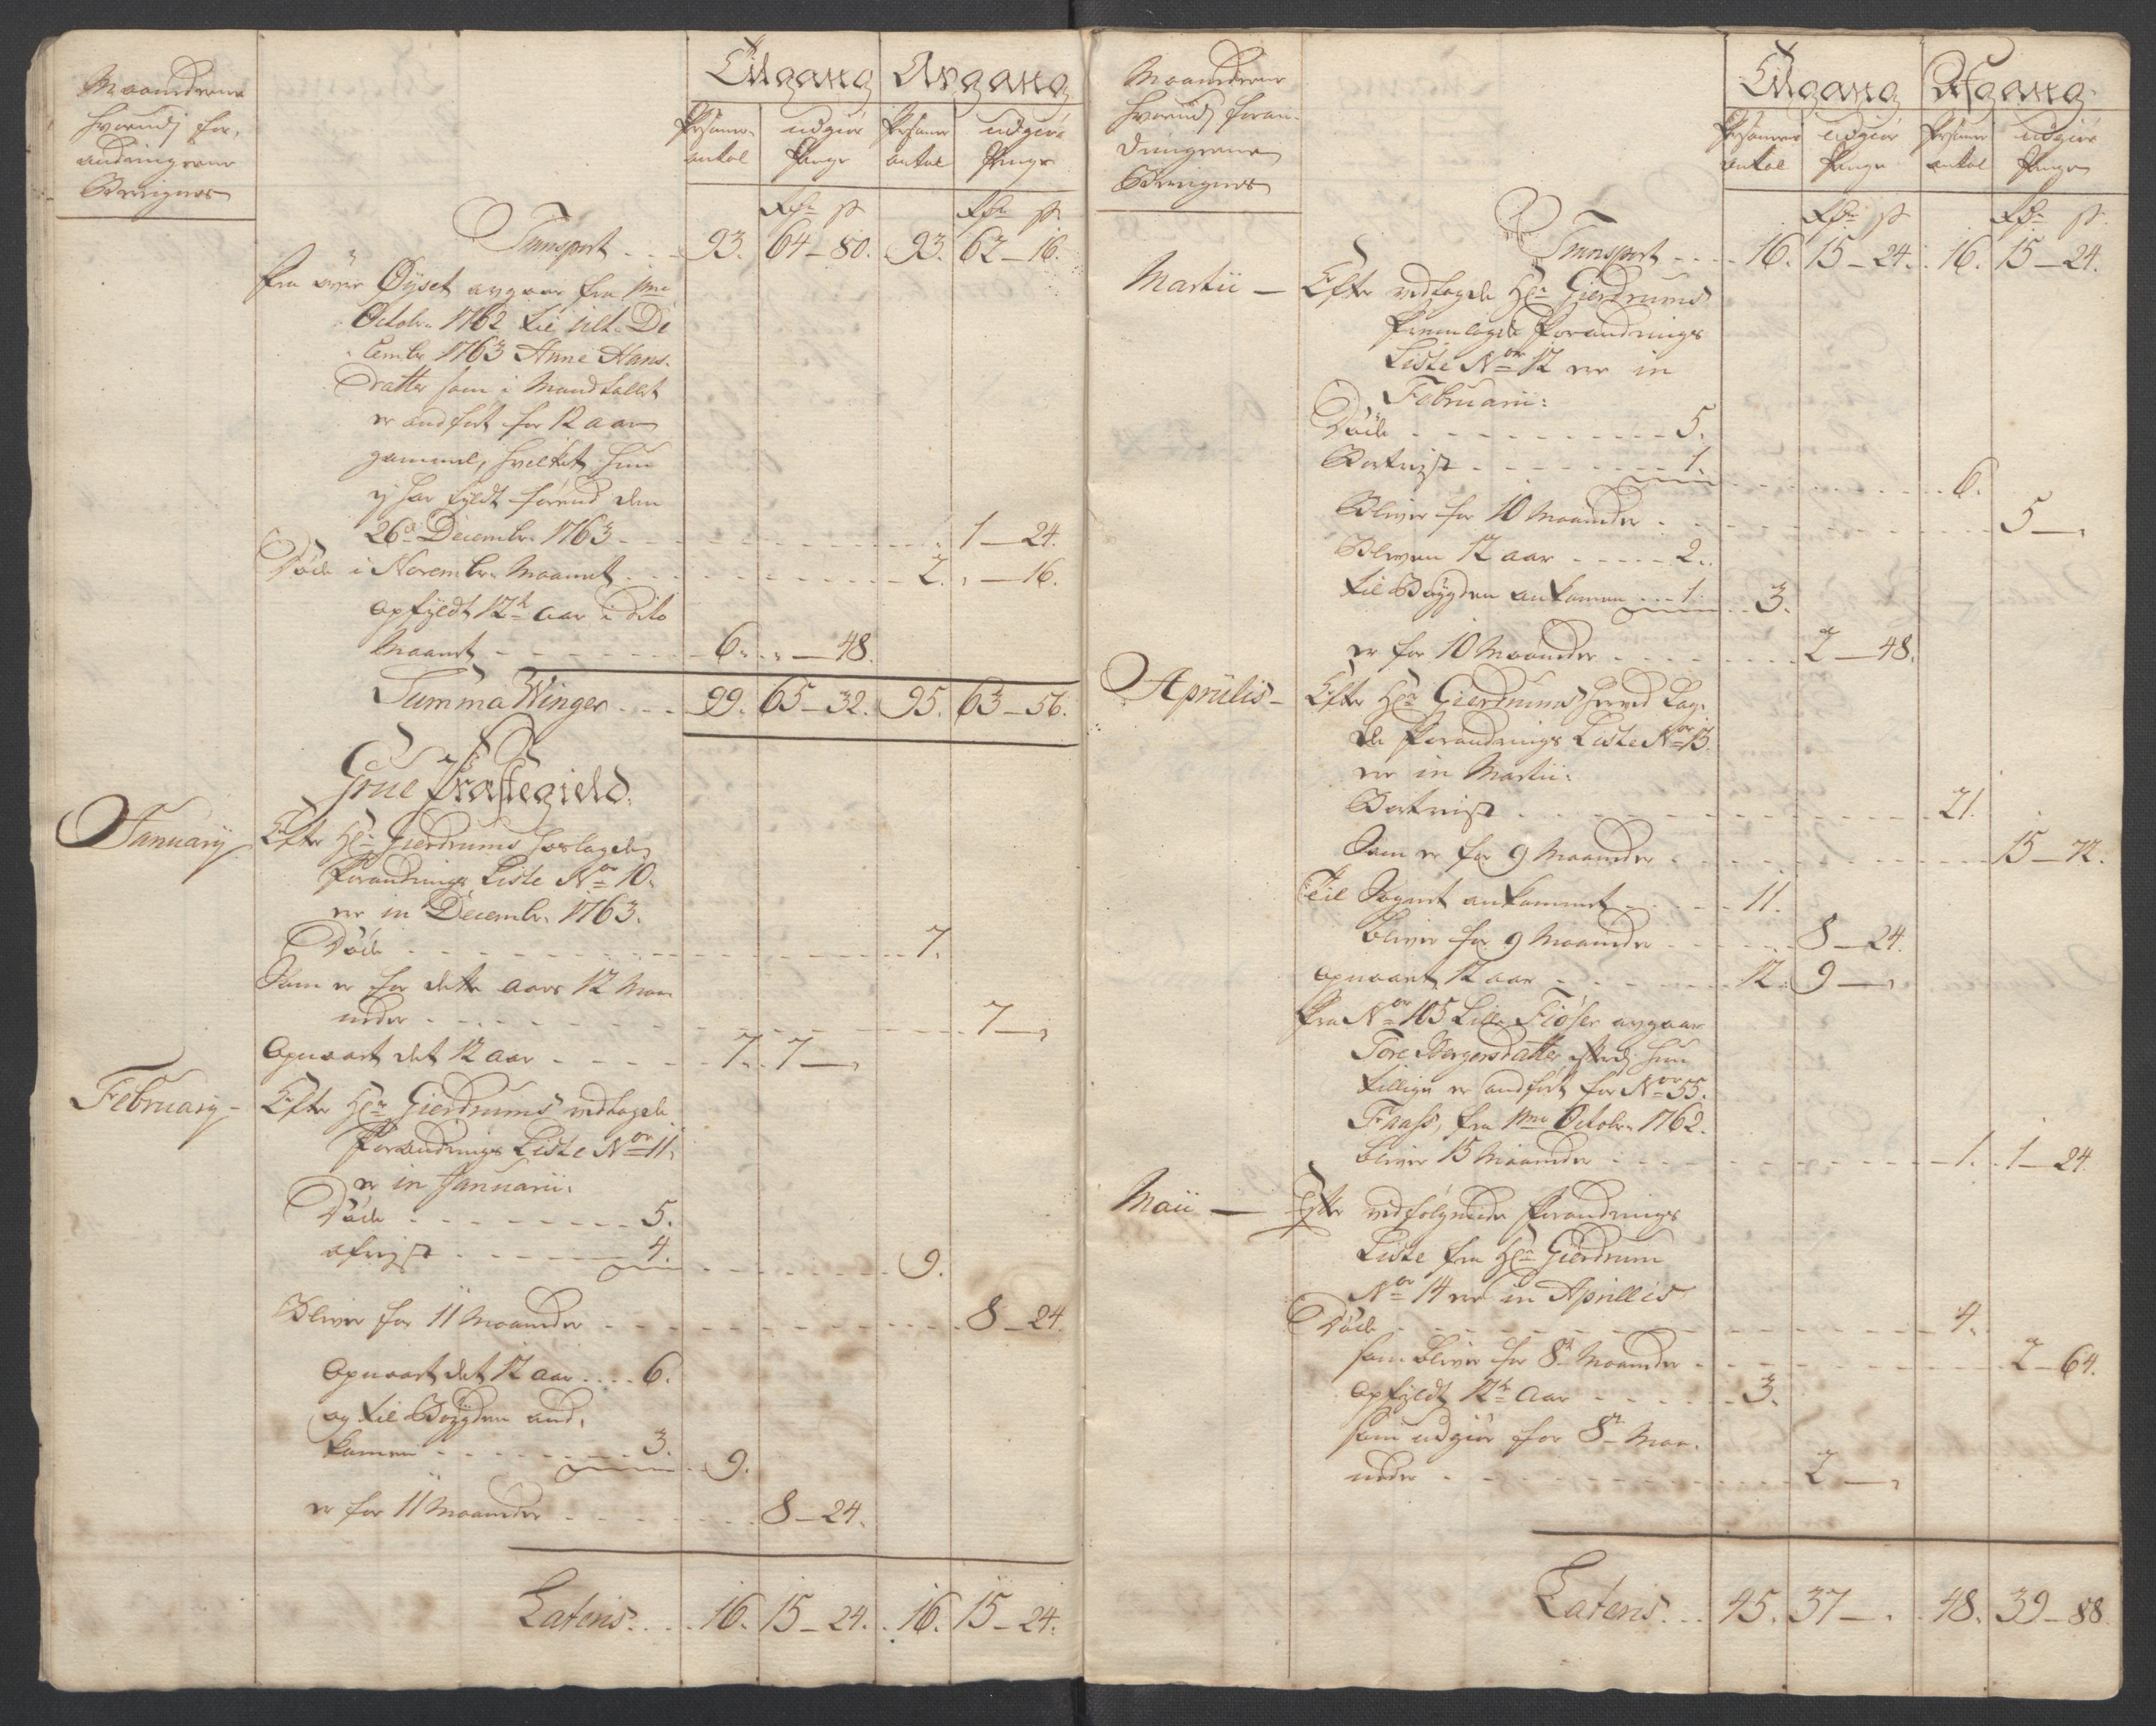 Maanederne
hvorudj for,
andringerne
Bereignes
Tilgang Avgang
Persone- udgiør Persone udgiør
antal Penge antal Penge
Rdr ß Rdr ß
Transport - - - 93. 64 - 80. 93. 62 - 16.
fra øvre Øyset avgaar fra 1me
Octobr. 1762 til ult. De
cembr. 1763 Anne Hans-
datter som i Mandtallet
er andført for 12 aar
gammel, hvilket hun
ej har fyldt førend den
26d Decembr. 1763 - - - 1 - 24.
Døde i Novembr. Maanet - - - 2. „ - 16.
opfyldt 12te aar i dito
Maanet - - - 6. „ - 48.
Summa Winger - - - 99. 65 - 32. 95. 63 - 56.
Grue Præstegield.
Januarij
Efter Hr. Gierdrums hoslagde
Forandrings Liste No 10.
er in Decembr. 1763.
Døde - - - 7.
Som er for dette aars 12 Maa
neder - - - 7 - „
Opnaaet det 12 aar - - - 7. 7 - „
February - Efter Hr. Gierdrums vedlagde
Forandrings Liste No 11.
er in Januarii.
Døde - - - 5.
afreyst - - - 4.
- - - 9.
Bliver for 11 Maaneder - - - 8 - 24.
Opnaaet det 12 aar .... 6.
og til Boygden and,
kommen - - - 3. 9.
er for 11 Maaneder - - - 8 - 24.
Lateris. - - - 16. 15 - 24. 16. 15 - 24.
Maanederne
hvorudj foran-
dringerne
Bereignes
Tilgang Afgang
Personer udgiør Persone udgiør
antal Penge antal Penge
Rdr ß Rdr ß
Transport - - - 16. 15 - 24. 16. 15 - 24.
Martii - Efter vedlagde Hr. Gierdrums
fremlagde Forandrings
Liste No 12 er in
Februarii:
Døde - - - 5.
Bortreyst - - - 1.
- - - 6.
Bliver for 10 Maaneder - - - 5 - „
Bleven 12 aar - - - 2.
til Bøygden ankomen ... 1. 3.
er for 10 Maaneder - - - 2 - 48.
Aprilis - Efter Hr. Gierdrums herved lag-
de Forandrings Liste No 13.
er in Martii:
Bortreist - - - 21.
Som er for 9 Maaneder - - - 15 - 72.
Til Sognet ankommet - - - 11.
bliver for 9 Maaneder - - - 8 - 24.
opnaaet 12 aar - - - 12. 9 - „
Fra No 105 Lille Fiøser avgaar
Tore Borgersdatter efterdj hun
tillige er andført for No 55.
Fnass, fra 1me Octobr. 1762.
bliver 15 Maaneder - - - 1. 1 - 24.
Maii - Efter vedfølgende Forandrings
Liste fra Hr. Gierdrum
No 14 er in Aprillis
Døde - - - 4.
som bliver for 8te Maaneder - - - 2 - 64.
opfyldt 12te aar - - - 3.
som udgiør for 8te Maa-
neder - - - 2 - „
Lateris. - - 45. 37 - „ 48. 39 - 88.